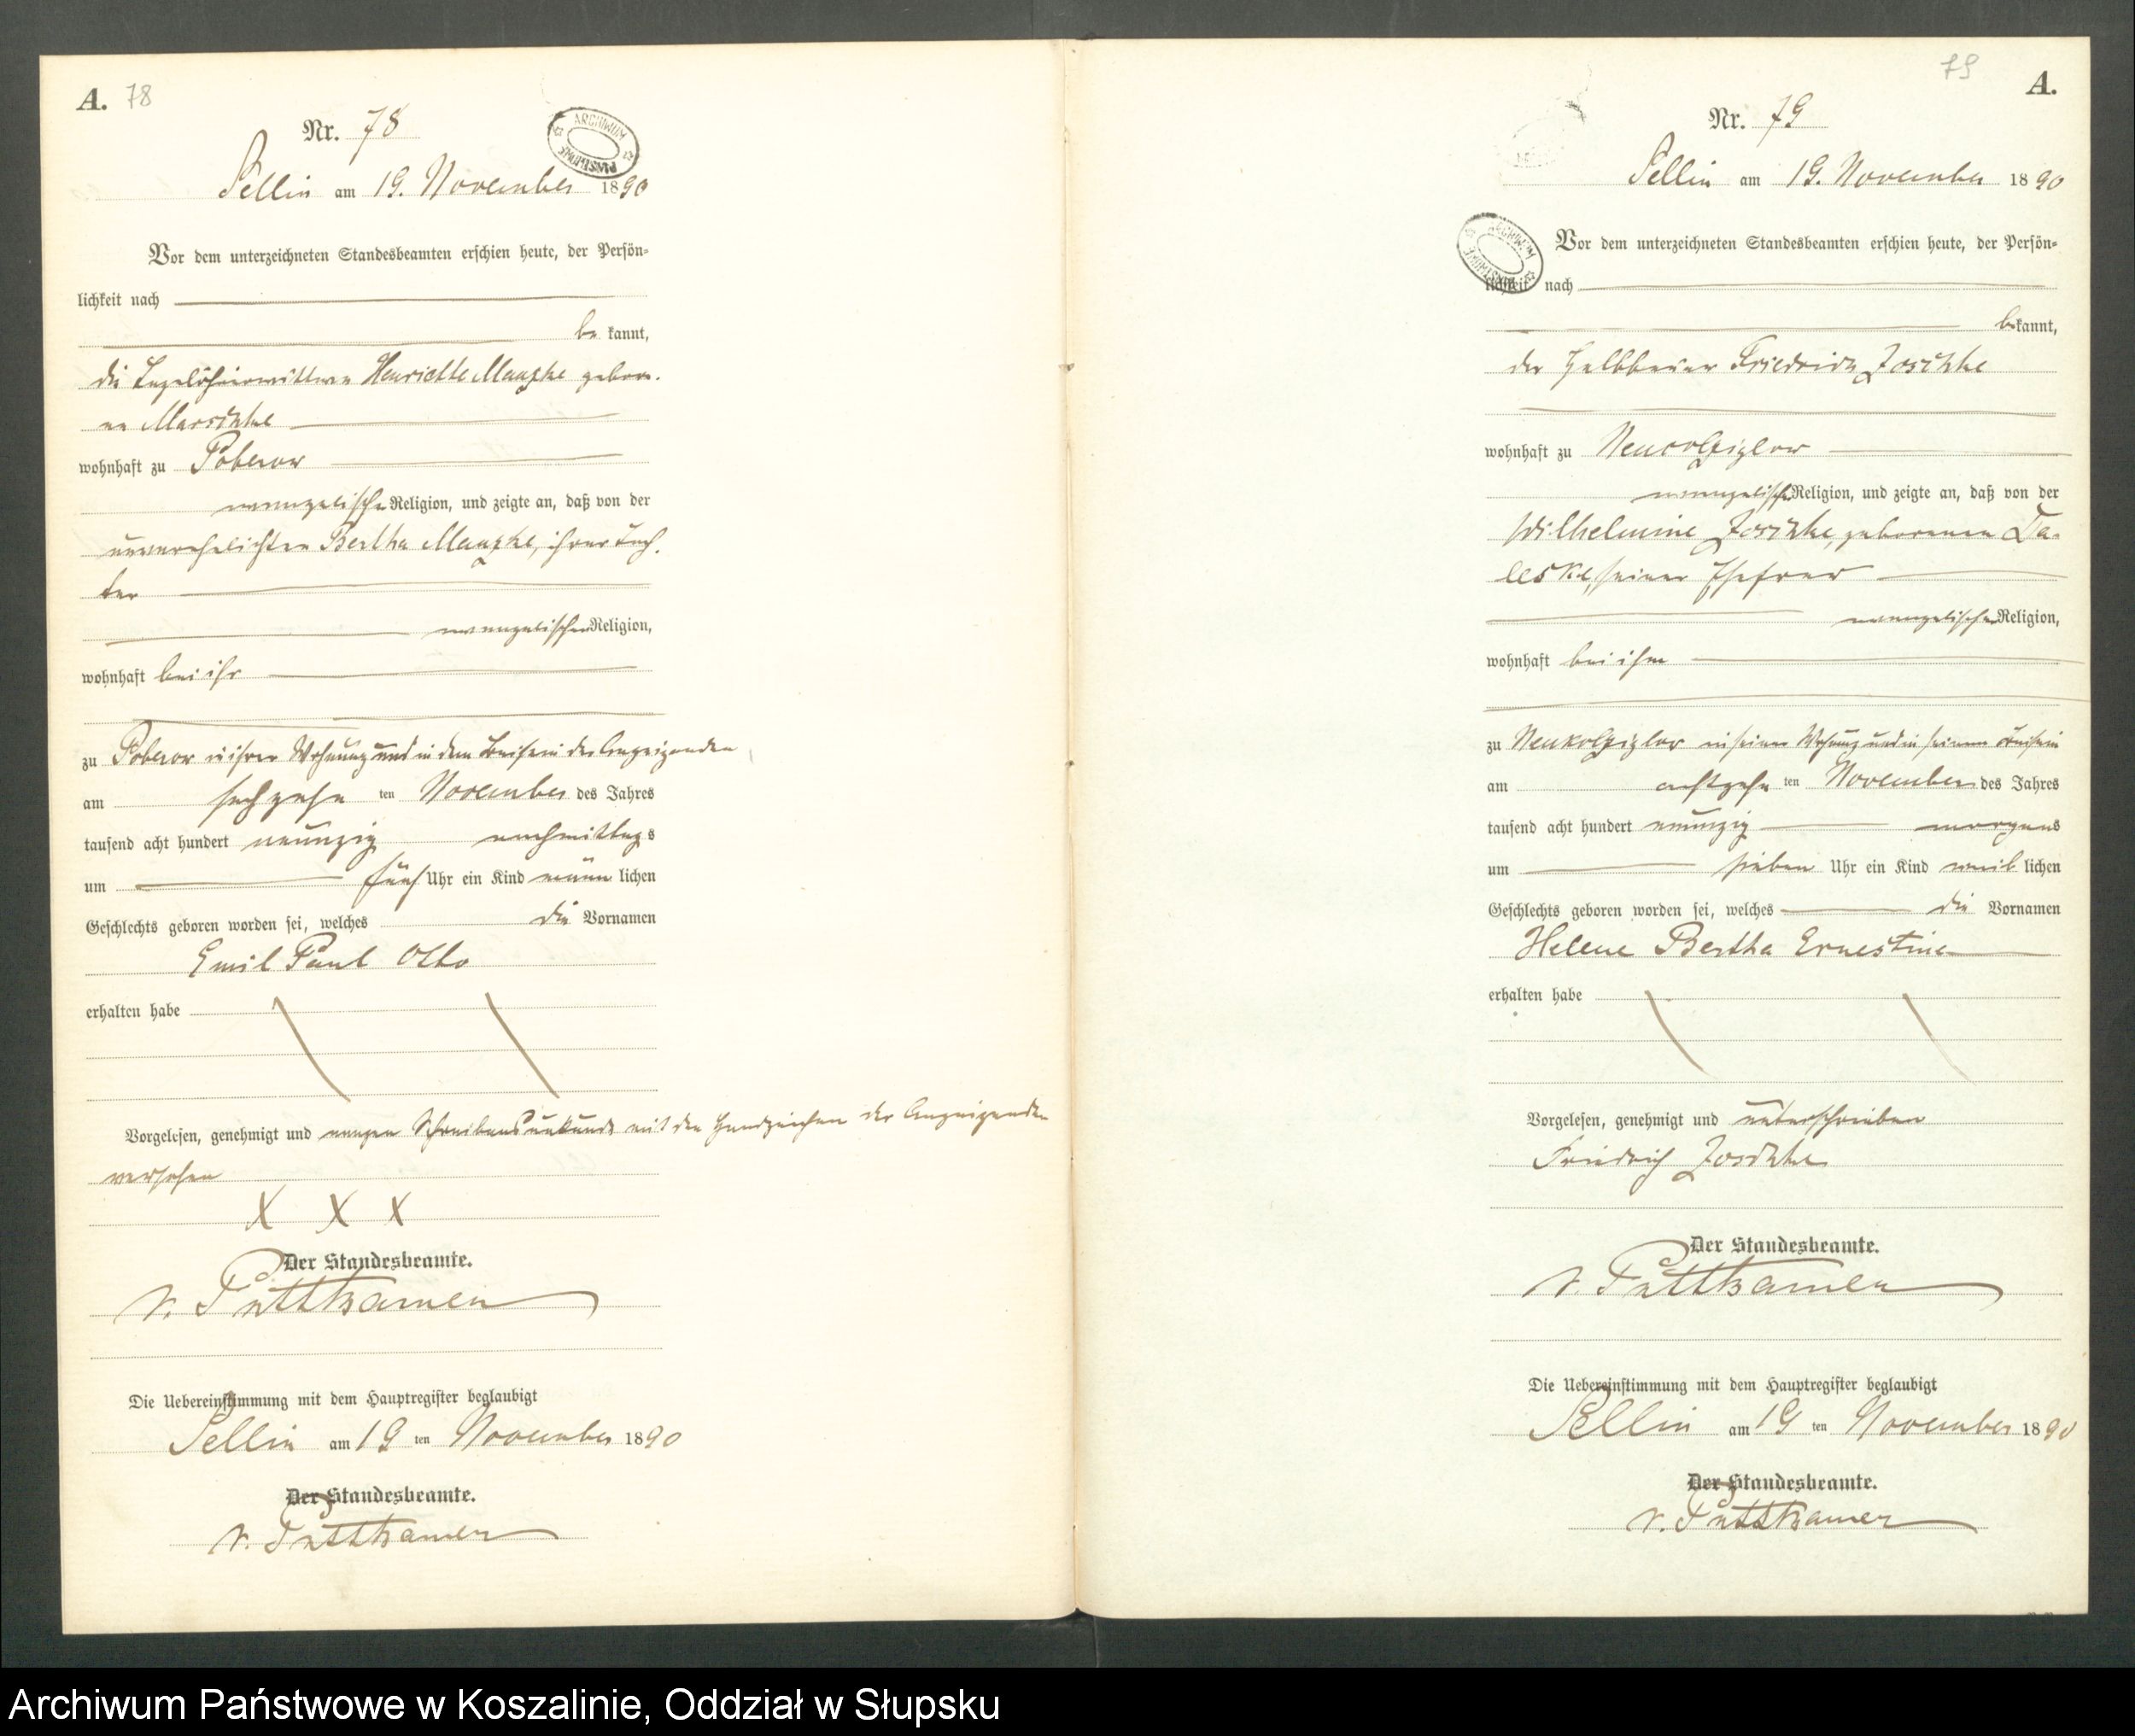 A. 78
Nr. 78
ARCHIWUM PAŃSTWOWE
Sellin am 19. November 1890
Vor dem unterzeichneten Standesbeamten erschien heute, der Persön-
lichkeit nach
be kannt,
die Tagelöhnerwittwe Henriette Manzke gebore-
ne Marschke
wohnhaft zu Poberow
evangelischer Religion, und zeigte an, daß von der
unverehelichten Bertha Manzke, ihrer Toch-
ter
evangelischer Religion,
wohnhaft bei ihr
zu Poberow in ihrer Wohnung und in dem Beisein der Anzeigenden
am sechzehn ten November des Jahres
tausend acht hundert neunzig nachmittags
um fünf Uhr ein Kind männ lichen
Geschlechts geboren worden sei, welches die Vornamen
Emil Paul Otto
erhalten habe
Vorgelesen, genehmigt und wegen Schreibensunkunde mit den Handzeichen der Anzeigenden
versehen
X X X
Der Standesbeamte.
v. Puttkamer
Die Uebereinstimmung mit dem Hauptregister beglaubigt
Sellin am 19 ten November 1890
Der Standesbeamte.
v. Puttkamer
79 A.
Nr. 79
Sellin am 19. November 1890
ARCHIWUM PAŃSTWOWE
Vor dem unterzeichneten Standesbeamten erschien heute, der Persön-
lichkeit nach
be kannt,
der Halbbauer Friedrich Joschke
wohnhaft zu Neukolziglow
evangelischer Religion, und zeigte an, daß von der
Wilhelmine Joschke, geborenen Da-
leske, seiner Ehefrau
evangelischer Religion,
wohnhaft bei ihm
zu Neukolziglow in seiner Wohnung und in seinem Beisein
am achtzehn ten November des Jahres
tausend acht hundert neunzig morgens
um sieben Uhr ein Kind weib lichen
Geschlechts geboren worden sei, welches die Vornamen
Helene Bertha Ernestine
erhalten habe
Vorgelesen, genehmigt und unterschrieben
Friedrich Joschke
Der Standesbeamte.
v. Puttkamer
Die Uebereinstimmung mit dem Hauptregister beglaubigt
Sellin am 19 ten November 1890
Der Standesbeamte.
v. Puttkamer
Archiwum Państwowe w Koszalinie, Oddział w Słupsku